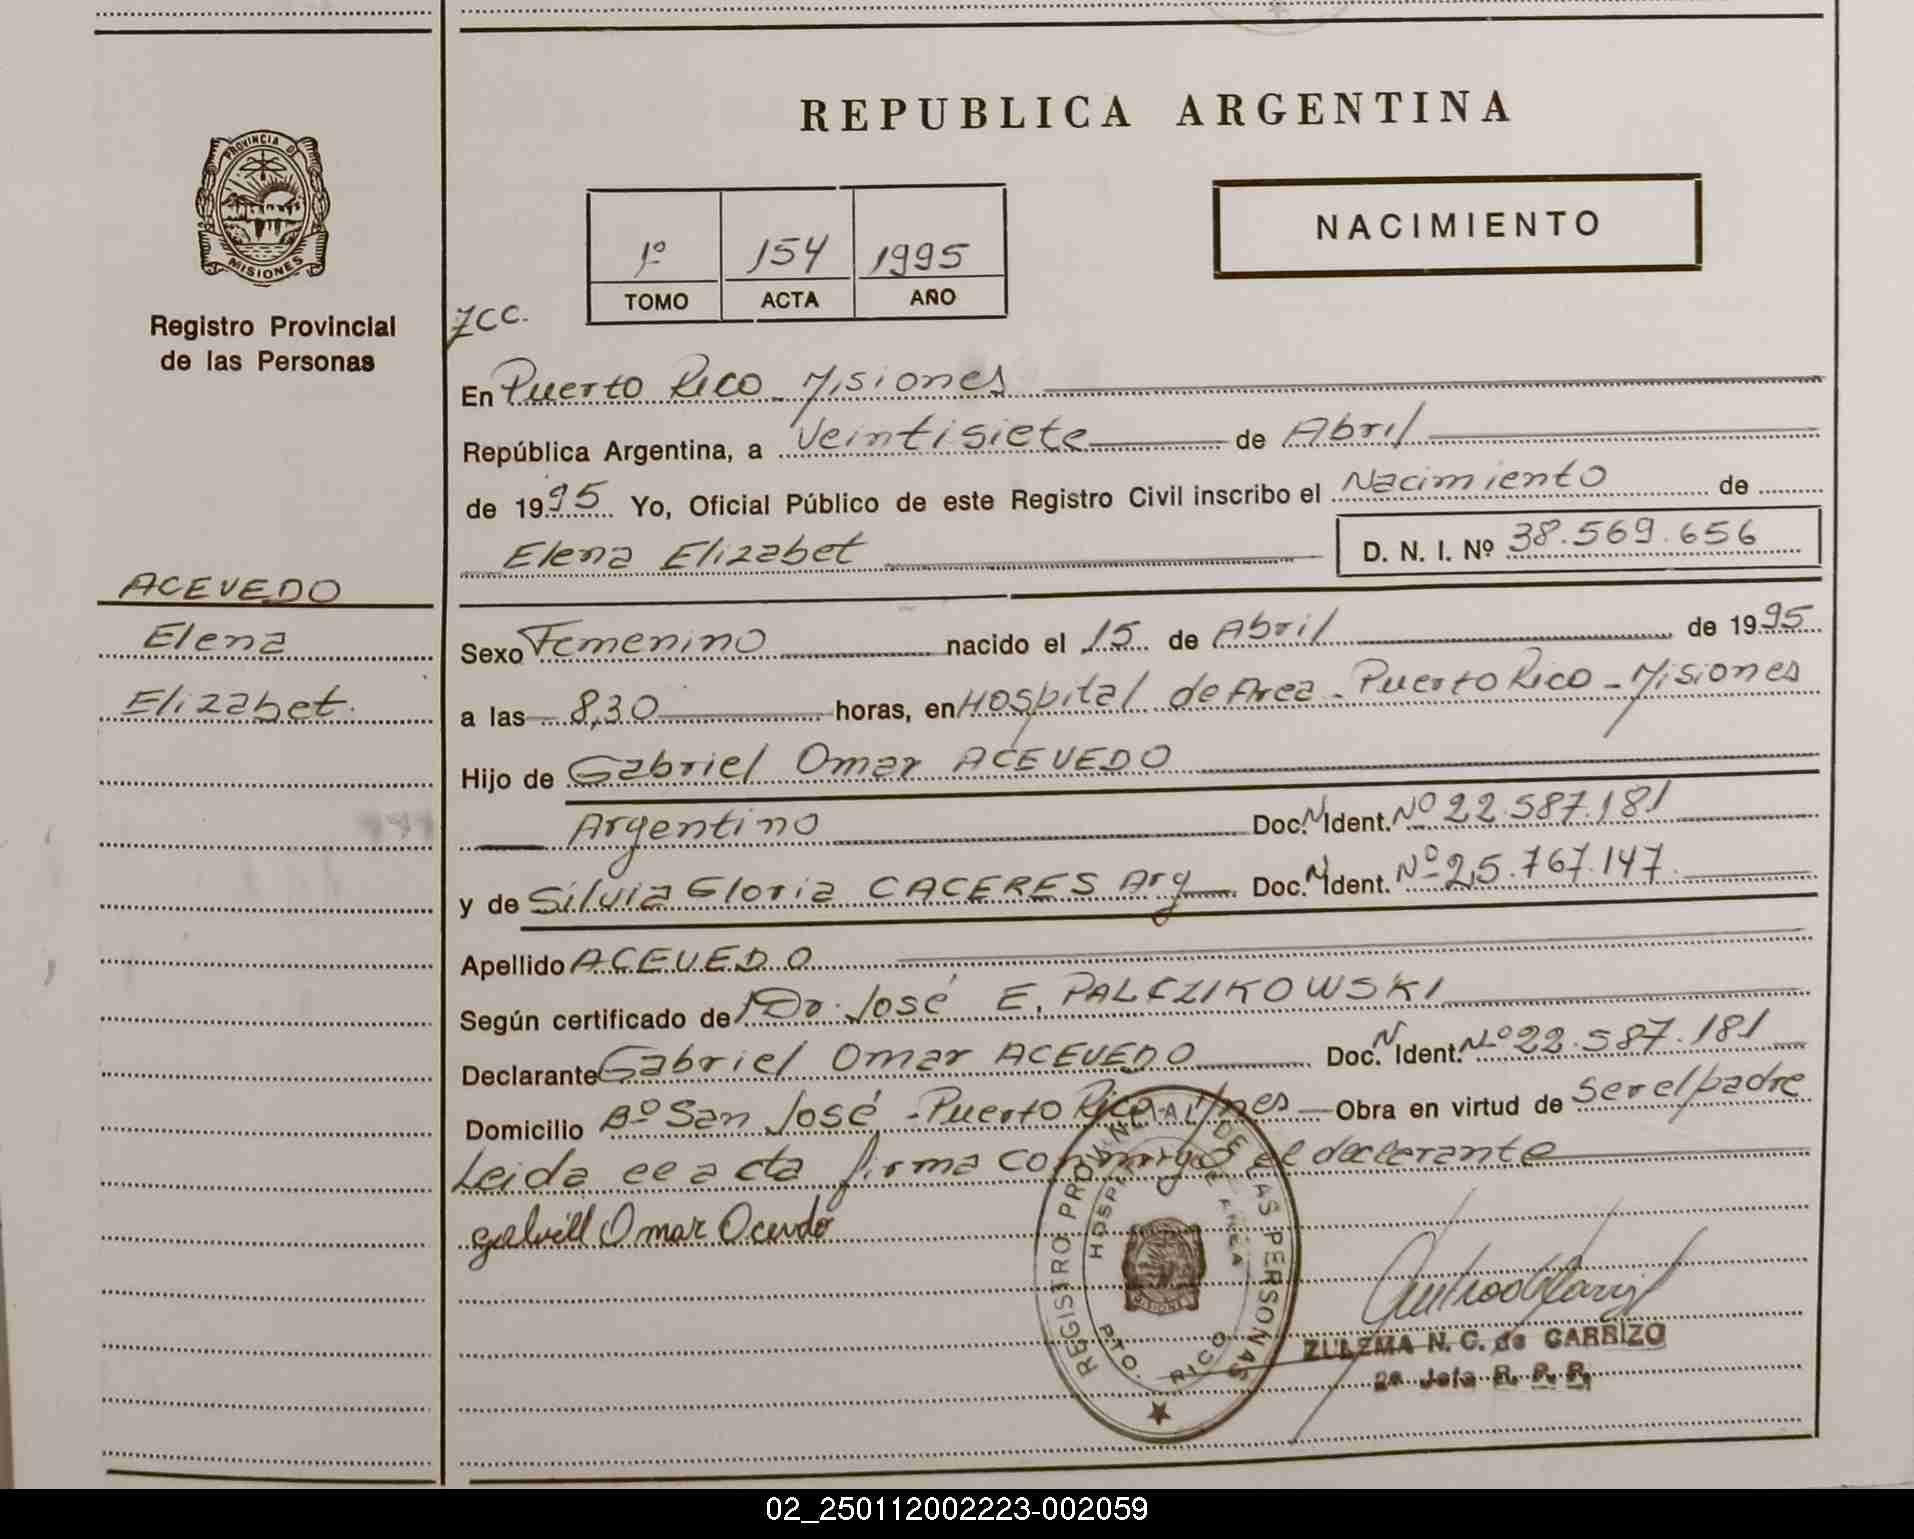 REPUBLICA ARGENTINA
PROVINCIA D
MISIONES
Registro Provincial
de las Personas
1º 154 1995
TOMO ACTA AÑO
NACIMIENTO
ZCC.
En Puerto Rico - Misiones
República Argentina, a Veintisiete de Abril
de 1995 Yo, Oficial Público de este Registro Civil inscribo el Nacimiento de
Elena Elizabet D. N. I. Nº 38.569.656
ACEVEDO
Elena
Elizabet.
Sexo Femenino nacido el 15 de Abril de 1995
a las 8,30 horas, en Hospital de Area - Puerto Rico - Misiones
Hijo de Gabriel Omar ACEVEDO
Argentino Doc. N Ident. Nº 22.587.181
y de Silvia Gloria CACERES Arg Doc. N Ident. Nº 25.767.147
Apellido ACEVEDO
Según certificado de Dr. José E. PALCZIKOWSKI
Declarante Gabriel Omar ACEVEDO Doc. N Ident. Nº 22.587.181
Domicilio Bº San José - Puerto Rico - Mnes Obra en virtud de Ser el padre
Leida el acta firma conmigo el declarante
Omar
REGISTRO PROVINCIAL DE LAS PERSONAS
HOSP. DE AREA
PTO. RICO
ZULEMA N. C. de CARRIZO
2ª Jefa R. P. P.
02_250112002223-002059